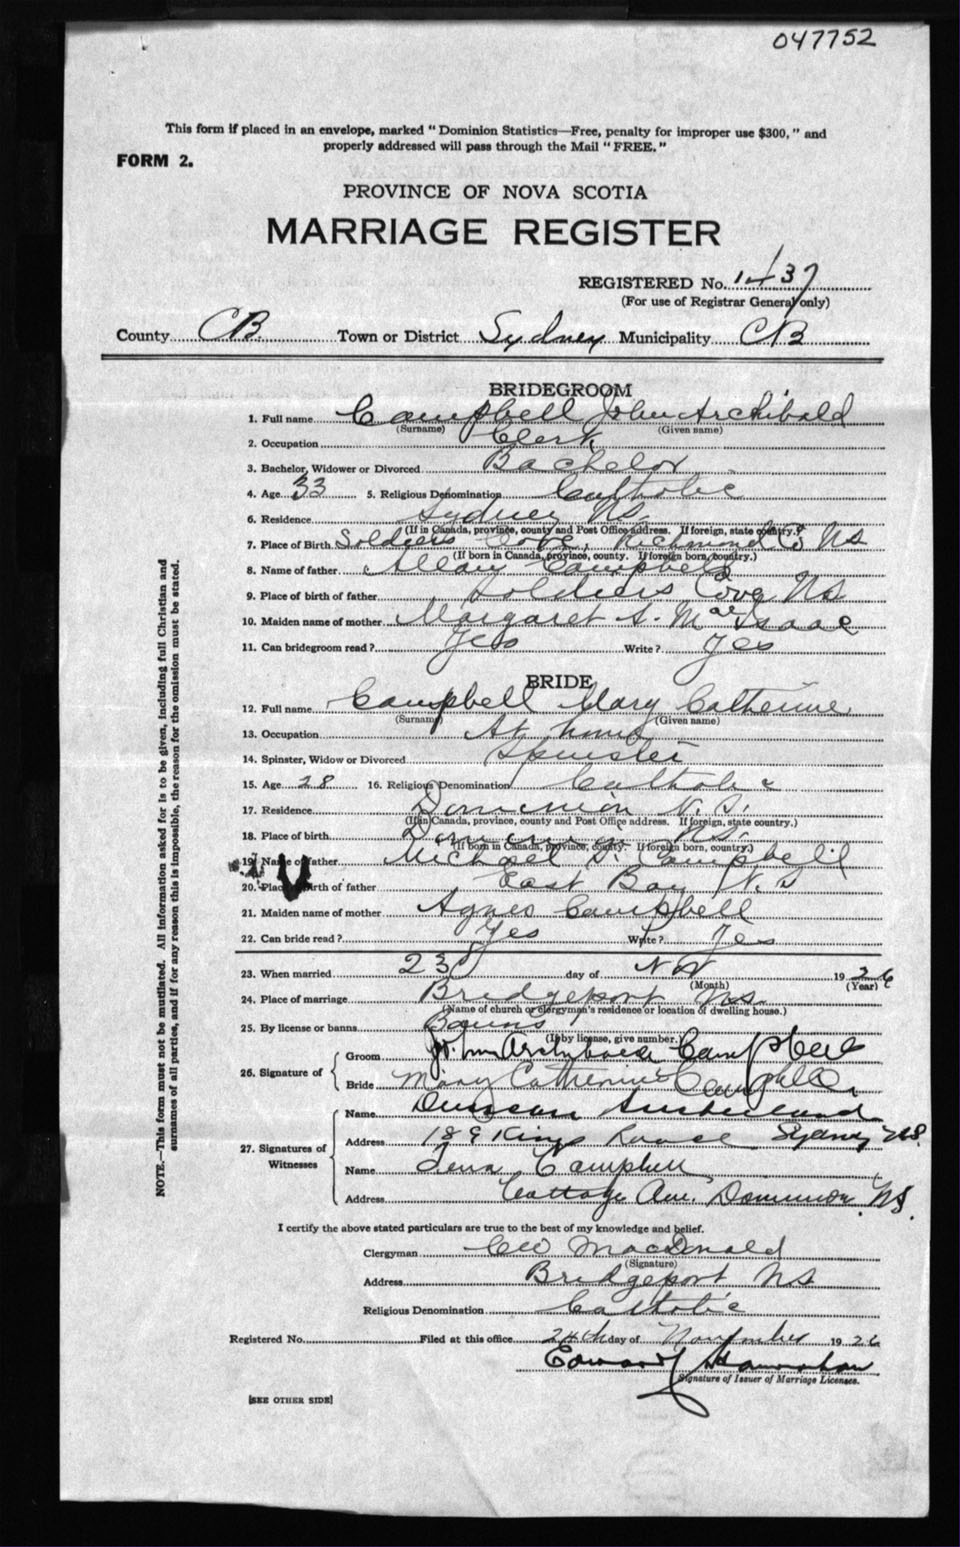 047752
This form if placed in an envelope, marked "Dominion Statistics—Free, penalty for improper use $300," and
properly addressed will pass through the Mail "FREE."
FORM 2.
PROVINCE OF NOVA SCOTIA
MARRIAGE REGISTER
REGISTERED No. 1437
(For use of Registrar General only)
County CB. Town or District Sydney Municipality CB
BRIDEGROOM
1. Full name Campbell John Archibald
(Surname) (Given name)
2. Occupation Clerk
3. Bachelor, Widower or Divorced Bachelor
4. Age 33 5. Religious Denomination Catholic
6. Residence Sydney NS.
(If in Canada, province, county and Post Office address. If foreign, state country.)
7. Place of Birth Soldiers Cove, Richmond Co NS
(If born in Canada, province, county. If foreign born, country.)
8. Name of father Allan Campbell
9. Place of birth of father Soldiers Cove NS
10. Maiden name of mother Margaret A. MacIsaac
11. Can bridegroom read? Yes Write? Yes
BRIDE
12. Full name Campbell Mary Catherine
(Surname) (Given name)
13. Occupation At home
14. Spinster, Widow or Divorced Spinster
15. Age 28 16. Religious Denomination Catholic
17. Residence Dominion N.S.
(If in Canada, province, county and Post Office address. If foreign, state country.)
18. Place of birth Dominion NS.
(If born in Canada, province, county. If foreign born, country.)
19. Name of father Michael D. Campbell
20. Place of birth of father East Bay N.S
21. Maiden name of mother Agnes Campbell
22. Can bride read? Yes Write? Yes
23. When married 23 day of Nov 1926
(Month) (Year)
24. Place of marriage Bridgeport NS.
(Name of church or clergyman's residence or location of dwelling house.)
25. By license or banns Banns
(If by license, give number.)
26. Signature of
Groom John Archibald Campbell
Bride Mary Catherine Campbell
27. Signatures of Witnesses
Name Duncan Sutherland
Address 189 Kings Road Sydney N.S.
Name Tena Campbell
Address Cottage Ave. Dominion, NS.
I certify the above stated particulars are true to the best of my knowledge and belief.
Clergyman MacDonald
(Signature)
Address Bridgeport NS
Religious Denomination Catholic
Registered No. Filed at this office 24th day of November 1926
Edward Hanrahan
Signature of Issuer of Marriage Licenses.
[SEE OTHER SIDE]
NOTE.—This form must not be mutilated. All information asked for is to be given, including full Christian and
surnames of all parties, and if for any reason this is impossible, the reason for the omission must be stated.